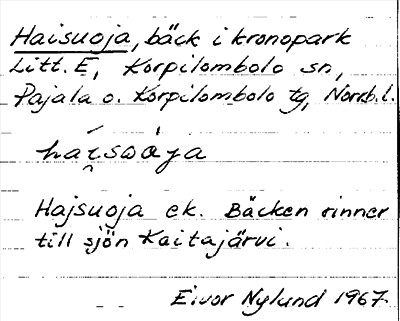 Haisuoja, bäck i kronopark
Litt. E, Korpilombolo sn,
Pajala o. Korpilombolo tg, Norrb.l.
Hajsuoja ek. Bäcken rinner
till sjön Kaitajärvi.
Eivor Nylund 1967